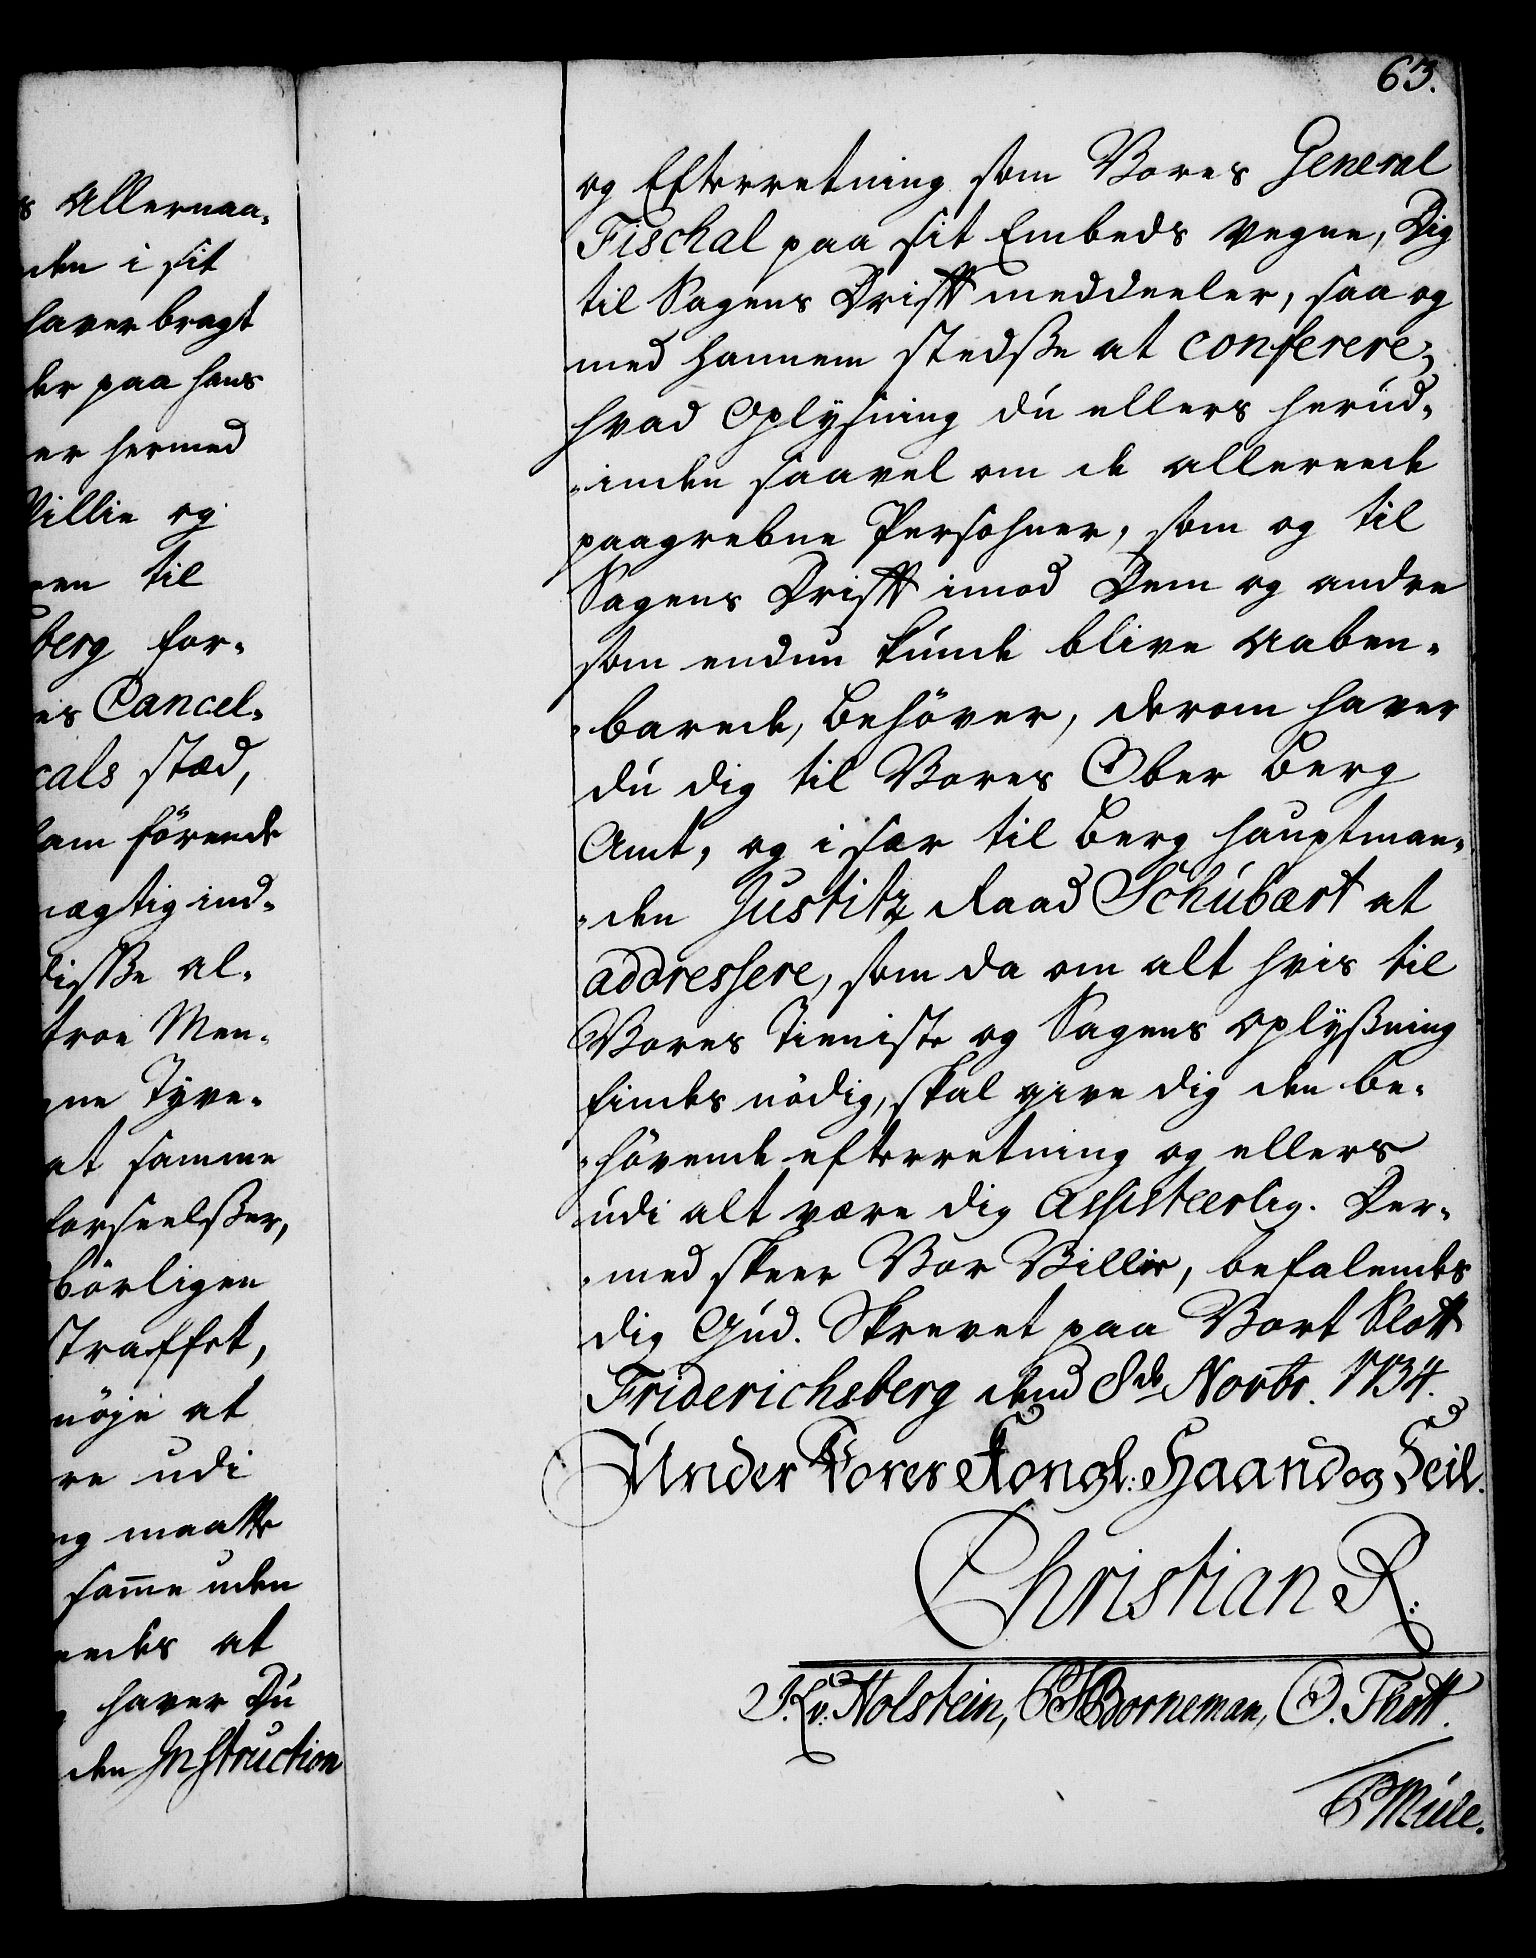 63.
s Allernaa-
den i sit
haver bragt
der paa hans
er hermed
Villie og
en til
berg for-
es Cancel-
cals stæd,
ham förende
mægtig ind-
disse al-
troe Men-
gne Tyve-
at samme
forseelßer,
börligen
straffet,
nöje at
re udi
ng maatte
sam̄e uden
endes at
haver Du
den Instruction
og Efterretning som Vores General
Fischal paa sit Embeds vegne, Dig
til Sagens Drifft meddeeler, saa og
med hannem stedße at conferere,
hvad Oplysning du ellers herud-
-inden saavel om de allereede
paagrebne Persohner, som og til
Sagens Drifft imod Dem og andre
som endnu kunde blive aaben-
-barede, behöver, derom haver
du dig til Vores Ober Berg
Amt, og i sær til Berg Hauptman-
-den Justitz Raad Schubart at
addressere, som da om alt hvis til
Vores Tieniste og Sagens oplyßning
findes nödig, skal give dig den be-
-hövende efterretning og ellers
udi alt være dig assisteerlig. Der-
-med skeer Vor Villie, befalendes
dig Gud. Skrevet paa Vort Slott
Friderichsberg dend 8de Novbr. 1734.
Under Vores Kongl: Haand og Seil.
Christian R:
J. L. v: Holstein, Borneman, O. Thott.
PMule.